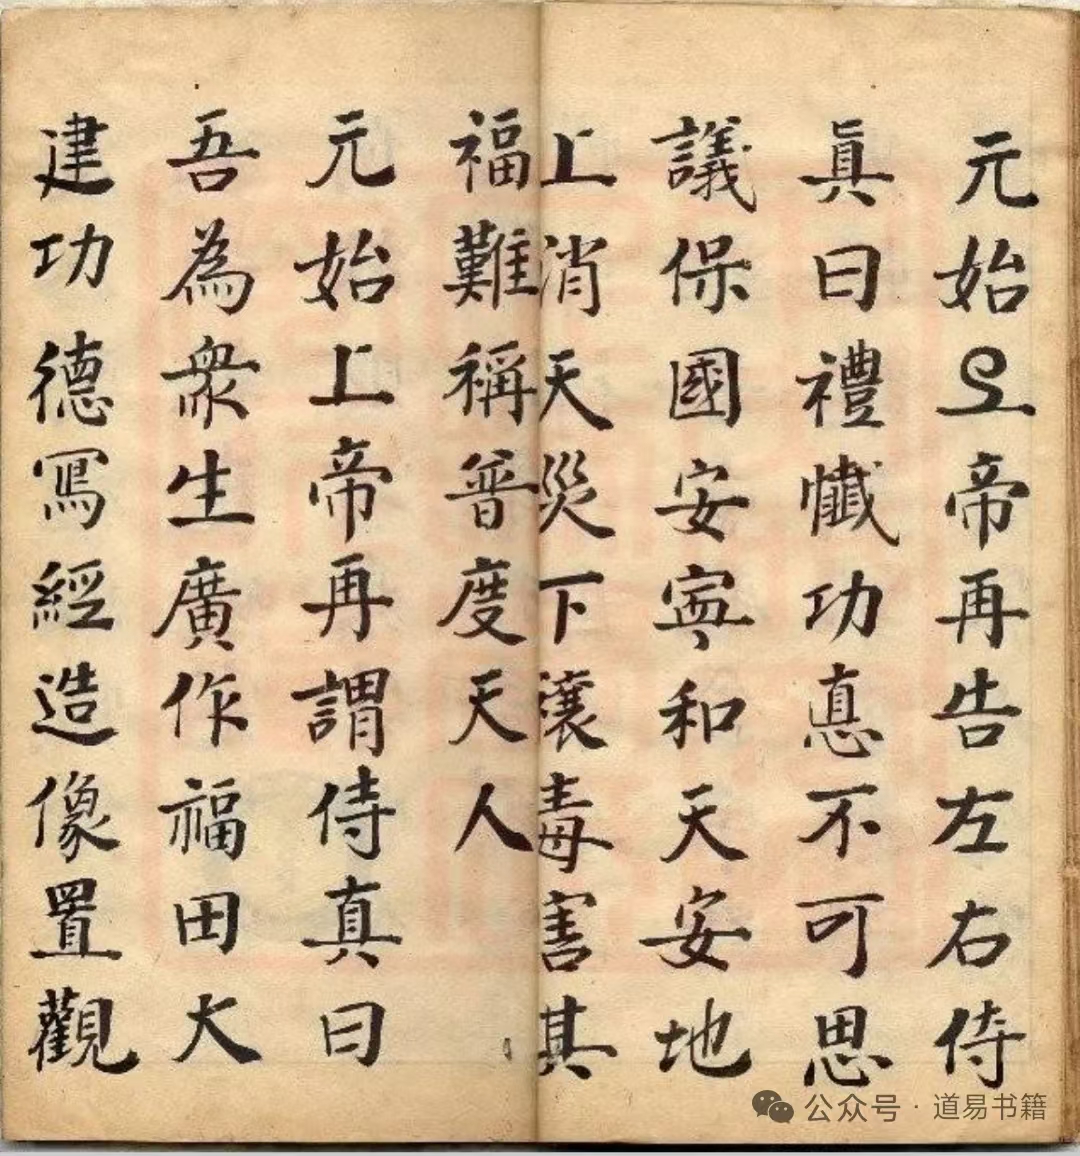 元始上帝再告左右侍
眞曰禮懺功惪不可思
議保國安寧和天安地
上消天災下禳毒害其
福難稱普度天人
元始上帝再謂侍真曰
吾為衆生廣作福田大
建功德寫經造像置觀
公众号·道易书籍